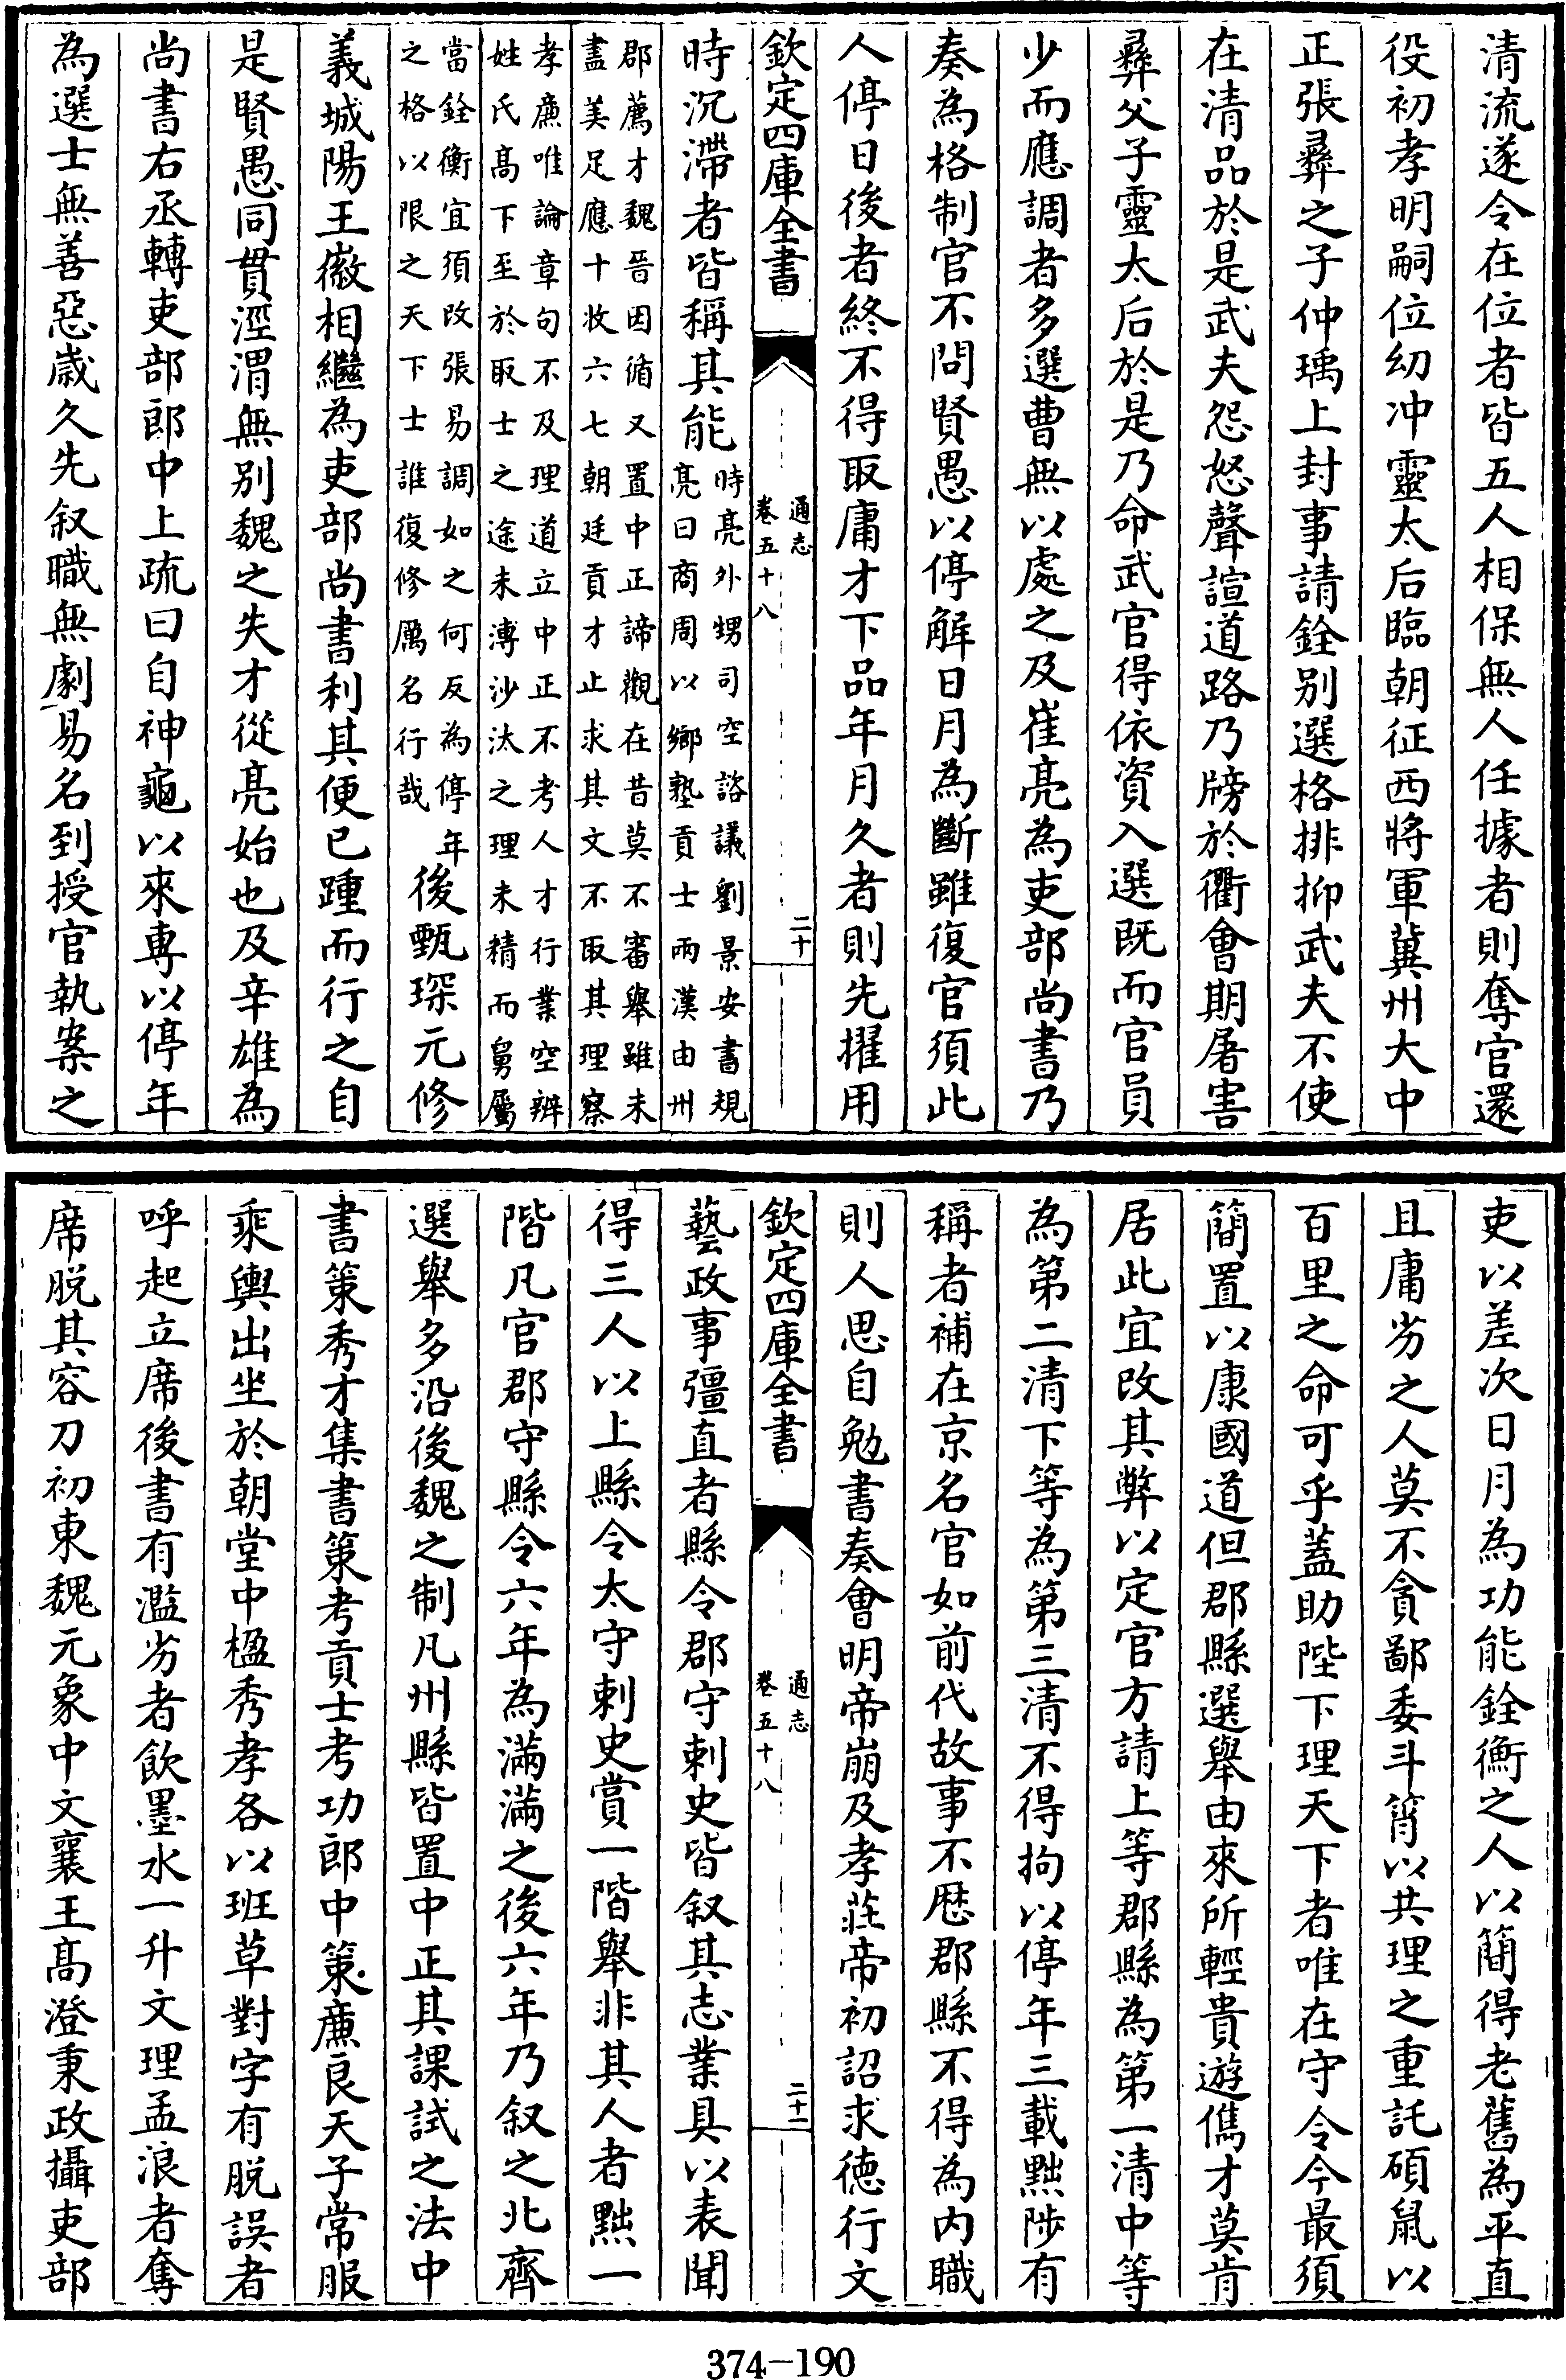 清流遂令在位者皆五人相保無人任據者則奪官還
役初孝明嗣位幼冲靈太后臨朝征西將軍冀州大中
正張彞之子仲瑀上封事請銓别選格排抑武夫不使
在清品於是武夫怨怒聲諠道路乃牓於衢會期屠害
彞父子靈太后於是乃命武官得依資入選既而官員
少而應調者多選曹無以處之及崔亮為吏部尚書乃
奏為格制官不問賢愚以停解日月為斷雖復官須此
人停日後者終不得取庸才下品年月久者則先擢用
欽定四庫全書
通志
卷五十八
二十
時沉滯者皆稱其能
時亮外甥司空諮議劉景安書規
亮曰商周以鄉塾貢士兩漢由州
郡薦才魏晉因循又置中正諦觀在昔莫不審舉雖未
盡美足應十收六七朝廷貢才止求其文不取其理察
孝廉唯論章句不及理道立中正不考人才行業空辨
姓氏髙下至於取士之途未溥沙汰之理未精而舅屬
當銓衡宜須改張易調如之何反為停年
之格以限之天下士誰復修厲名行哉
後甄琛元修
義城陽王徽相繼為吏部尚書利其便已踵而行之自
是賢愚同貫涇渭無别魏之失才從亮始也及辛雄為
尚書右丞轉吏部郎中上疏曰自神龜以來専以停年
為選士無善惡歳久先叙職無劇易名到授官執案之
吏以差次日月為功能銓衡之人以簡得老舊為平直
且庸劣之人莫不貪鄙委斗筲以共理之重託碩鼠以
百里之命可乎蓋助陛下理天下者唯在守令今最須
簡置以康國道但郡縣選舉由來所輕貴遊儁才莫肯
居此宜改其弊以定官方請上等郡縣為第一清中等
為第二清下等為第三清不得拘以停年三載黜陟有
稱者補在京名官如前代故事不歴郡縣不得為内職
則人思自勉書奏㑹明帝崩及孝莊帝初詔求徳行文
欽定四庫全書
通志
卷五十八
二十一
藝政事彊直者縣令郡守刺史皆叙其志業具以表聞
得三人以上縣令太守刺史賞一階舉非其人者黜一
階凡官郡守縣令六年為滿滿之後六年乃叙之北齊
選舉多沿後魏之制凡州縣皆置中正其課試之法中
書策秀才集書策考貢士考功郎中策廉良天子常服
乘輿出坐於朝堂中楹秀孝各以班草對字有脱誤者
呼起立席後書有濫劣者飲墨水一升文理孟浪者奪
席脱其容刀初東魏元象中文襄王髙澄秉政攝吏部
374-190